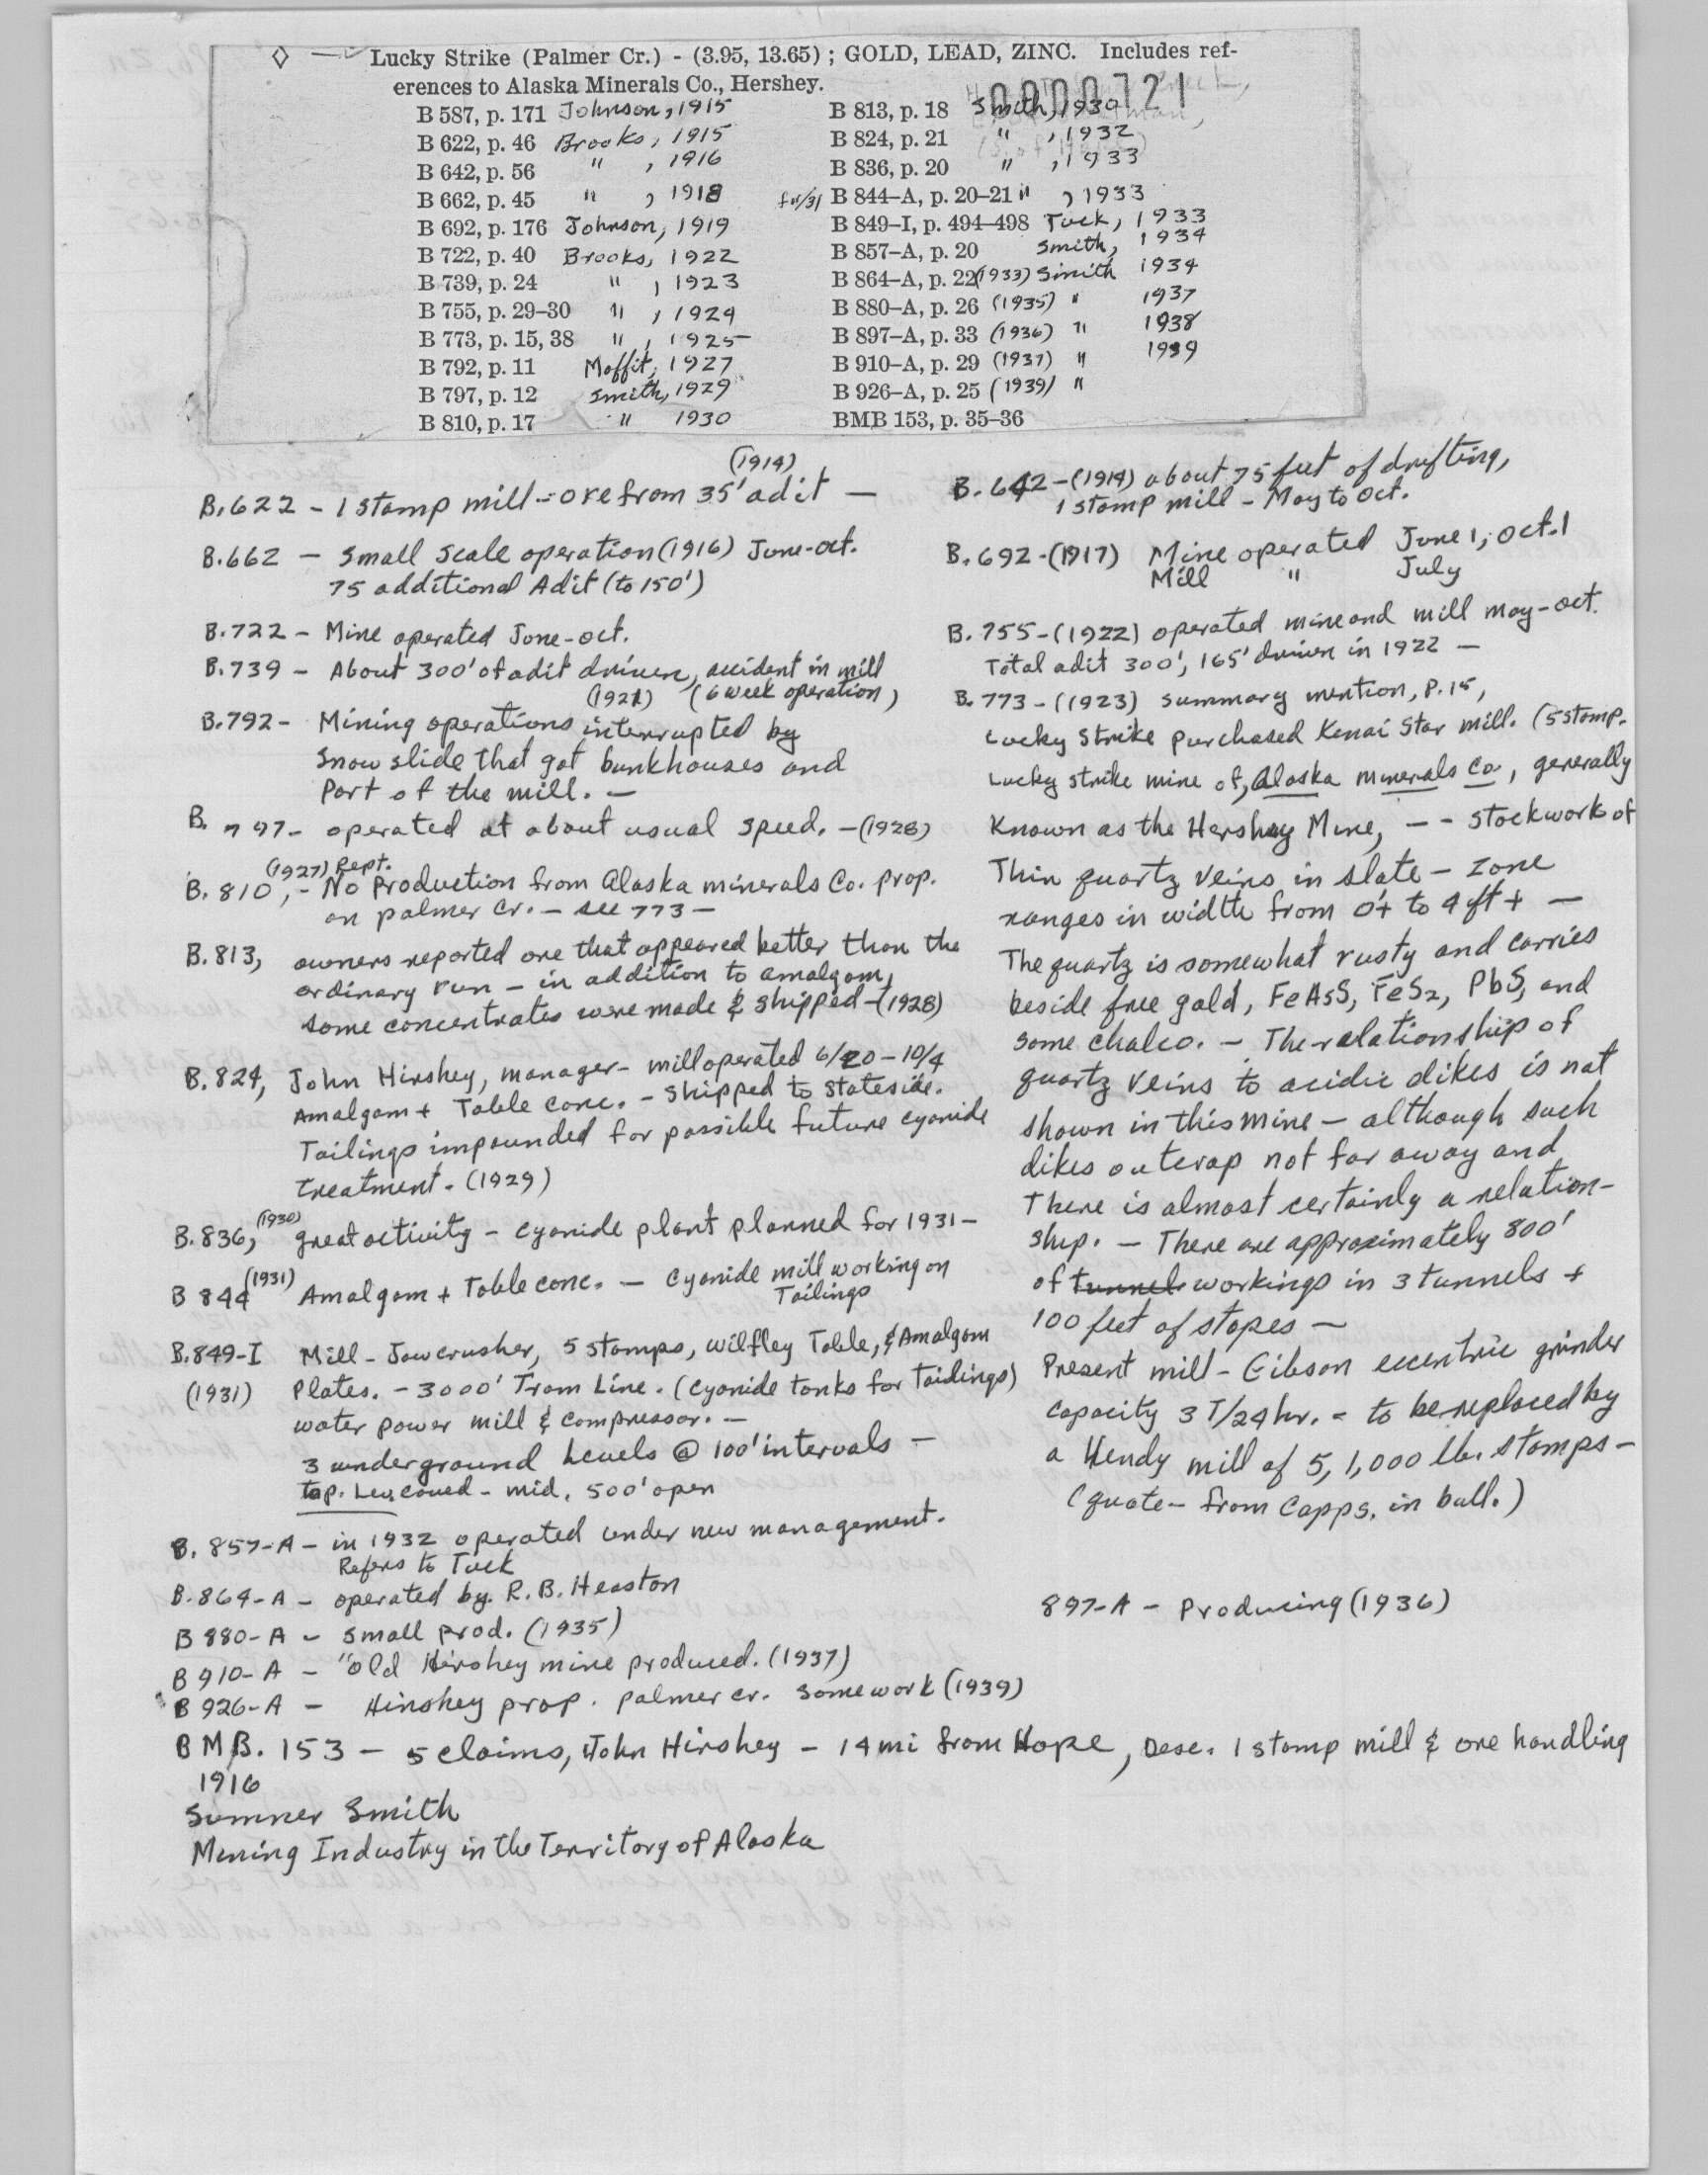 ◇ — Lucky Strike (Palmer Cr.) - (3.95, 13.65) ; GOLD, LEAD, ZINC. Includes ref-
erences to Alaska Minerals Co., Hershey.
00000721
B 587, p. 171 Johnson, 1915
B 622, p. 46 Brooks, 1915
B 642, p. 56 " , 1916
B 662, p. 45 " , 1918
B 692, p. 176 Johnson, 1919
B 722, p. 40 Brooks, 1922
B 739, p. 24 " , 1923
B 755, p. 29–30 " , 1924
B 773, p. 15, 38 " , 1925
B 792, p. 11 Moffit, 1927
B 797, p. 12 Smith, 1929
B 810, p. 17 " 1930
B 813, p. 18 Smith, 1930
B 824, p. 21 " , 1932
B 836, p. 20 " , 1933
B 844–A, p. 20–21 " , 1933
B 849–I, p. 494–498 Tuck, 1933
B 857–A, p. 20 Smith, 1934
B 864–A, p. 22 (1933) Smith 1934
B 880–A, p. 26 (1935) " 1937
B 897–A, p. 33 (1936) " 1938
B 910–A, p. 29 (1937) " 1939
B 926–A, p. 25 (1939) "
BMB 153, p. 35–36
(1914)
B.622 - 1 stamp mill - ore from 35' adit —
B.662 — Small scale operation (1916) June-Oct.
75 additional Adit (to 150')
B.722 - Mine operated June-Oct.
B.739 - About 300' of adit driven, accident in mill
(1921) (6 week operation)
B.792 - Mining operations interrupted by
Snow slide that got bunkhouses and
Part of the mill. —
B. 797- operated at about usual speed. — (1928)
(1927) Rept.
B. 810, - No Production from Alaska minerals Co. prop.
on palmer cr. — see 773 —
B.813, owners reported ore that appeared better than the
ordinary run — in addition to amalgam,
some concentrates were made & shipped - (1928)
B.824, John Hirshey, manager - mill operated 6/20 - 10/4
Amalgam + Table conc. - shipped to stateside.
Tailings impounded for possible future cyanide
treatment. (1929)
B.836, (1930) great activity - cyanide plant planned for 1931 —
B 844 (1931) Amalgam + Table conc. — Cyanide mill working on
Tailings
B.849-I Mill - Jawcrusher, 5 stamps, wilfley Table, & Amalgam
(1931) Plates. - 3000' Tram Line. (cyanide tanks for Tailings)
water power mill & compressor. —
3 underground Levels @ 100' intervals —
top. Lev. caved - mid. 500' open
B. 857-A — in 1932 operated under new management.
Refers to Tuck
B.864-A - operated by R.B. Heaston
B 880-A - small prod. (1935)
B 910-A - "old Hirshey mine produced. (1937)
B 926-A — Hirshey prop. palmer cr. some work (1939)
B. 642 - (1914) about 75 feet of drifting,
1 stamp mill - May to Oct.
B. 692 - (1917) Mine operated June 1, Oct. 1
Mill " July
B. 755 - (1922) operated mine and mill may-oct.
Total adit 300', 165' driven in 1922 —
B. 773 - (1923) summary mention, P. 15,
Lucky Strike purchased Kenai Star mill. (5 stamp.
Lucky strike mine of, Alaska minerals co., generally
Known as the Hershey Mine, — - stockwork of
Thin quartz veins in slate — zone
ranges in width from 0'+ to 4 ft + —
The quartz is somewhat rusty and carries
beside free gold, FeAsS, FeS2, PbS, and
some chalco. — The relationship of
quartz veins to acidic dikes is not
shown in this mine — although such
dikes outcrop not far away and
There is almost certainly a relation-
ship. — There are approximately 800'
of tunnel workings in 3 tunnels +
100 feet of stopes —
Present mill - Gibson eccentric grinder
capacity 3 T/24 hr. - to be replaced by
a Hendy mill of 5, 1,000 lb. stamps —
(quote - from Capps, in bull.)
897-A — Producing (1936)
BMB. 153 — 5 claims, John Hirshey — 14 mi from Hope, Desc. 1 stamp mill & ore handling
1916
Sumner Smith
Mining Industry in the Territory of Alaska